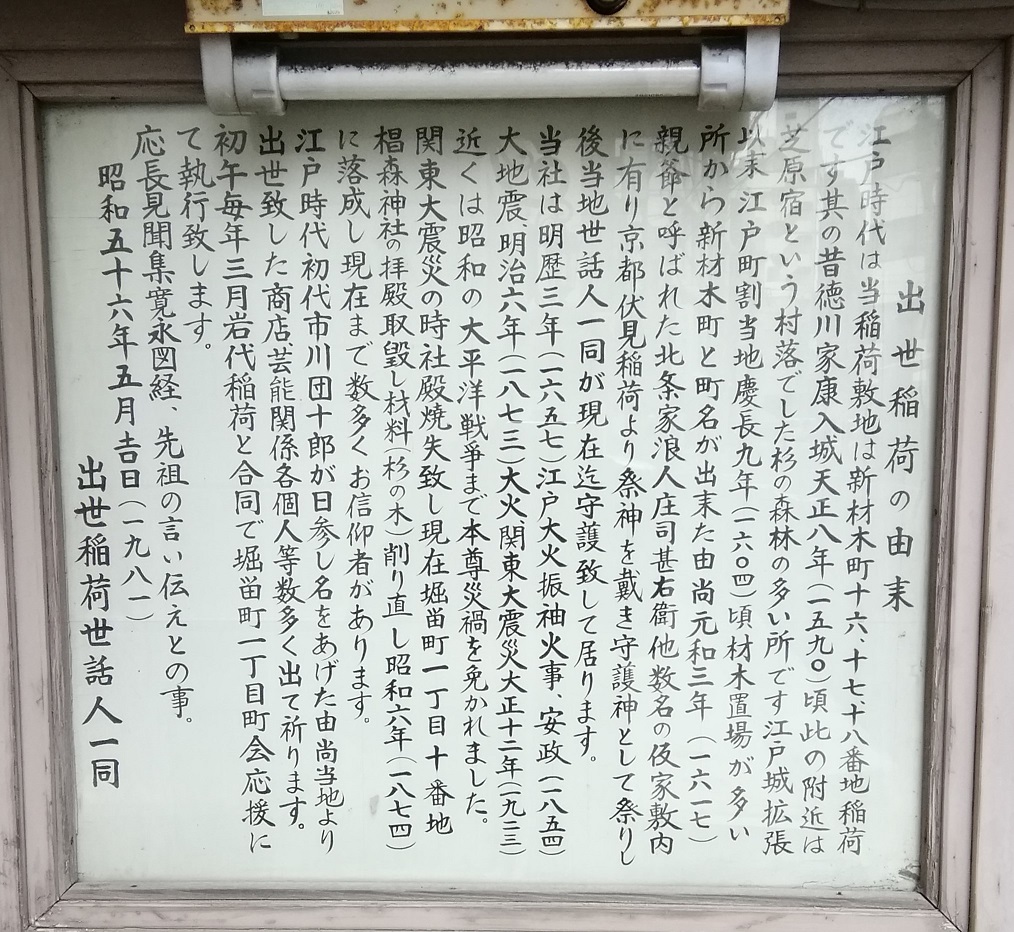 出世稲荷の由来
江戸時代は当稲荷敷地は新材木町十六、十七、十八番地稲荷
です其の昔徳川家康入城天正八年(一五九〇)頃此の附近は
芝原宿という村落でした杉の森林の多い所です江戸城拡張
以来江戸町割当地慶長九年(一六〇四)頃材木置場が多い
所から新材木町と町名が出来た由尚元和三年(一六一七)
親爺と呼ばれた北条家浪人庄司甚右衛他数名の仮家敷内
に有り京都伏見稲荷より祭神を戴き守護神として祭りし
後当地世話人一同が現在迄守護致して居ります。
当社は明歴三年(一六五七)江戸大火振袖火事、安政(一八五四)
大地震、明治六年(一八七三)大火、関東大震災大正十二年(一九二三)
近くは昭和の大平洋戦爭まで本尊災禍を免かれました。
関東大震災の時社殿焼失致し現在堀留町一丁目十番地
椙森神社の拝殿取毀し材料(杉の木)削り直し昭和六年(一八七四)
に落成し現在まで数多くお信仰者があります。
江戸時代初代市川団十郎が日参し名をあげた由尚当地より
出世致した商店芸能関係各個人等数多く出て祈ります。
初午毎年三月岩代稲荷と合同で堀留町一丁目町会応援に
て執行致します。
応長見聞集寛永図経、先祖の言い伝えとの事。
昭和五十六年五月吉日(一九八一)
出世稲荷世話人一同